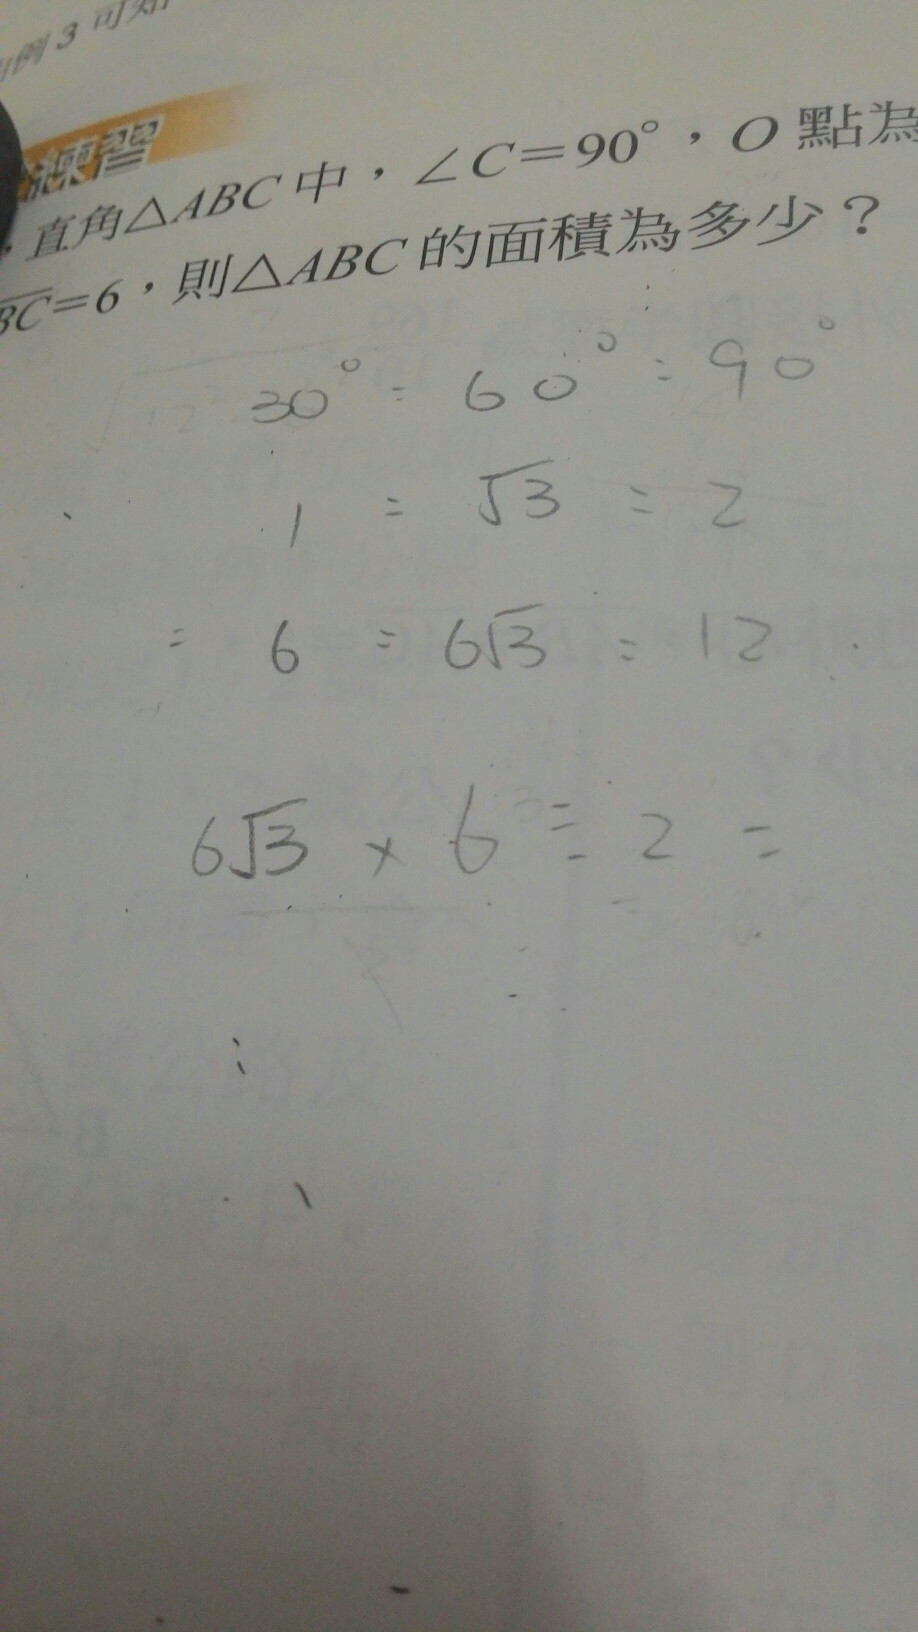 例3可知
練習
直角△ABC中，∠C=90°，O點為
BC=6，則△ABC的面積為多少？
30° : 60° : 90°
1 : √3 : 2
= 6 : 6√3 : 12
6√3 × 6 ÷ 2 =